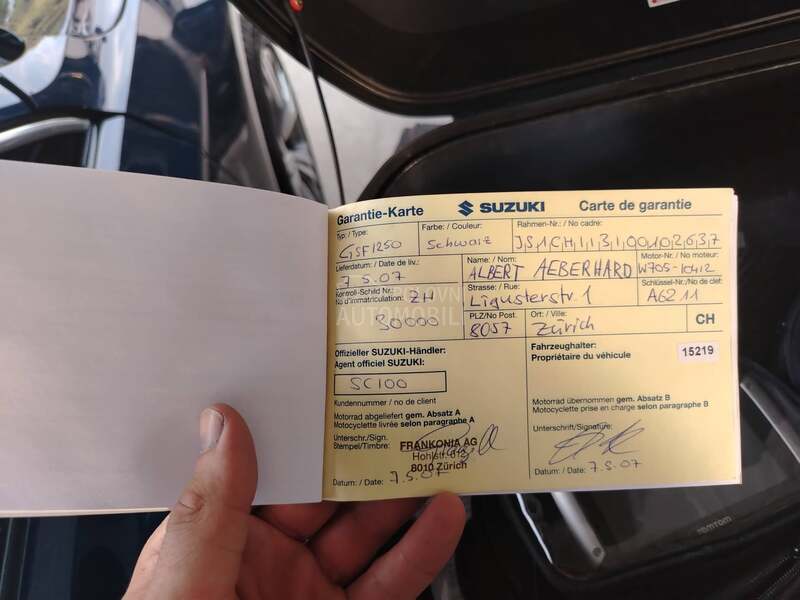 Garantie-Karte SUZUKI Carte de garantie
Typ: / Type: Farbe: / Couleur: Rahmen-Nr.: / No cadre:
GSF1250 Schwarz JS1CH113100102637
Lieferdatum: / Date de liv.: Name: / Nom: Motor-Nr.: / No moteur:
7.5.07 ALBERT AEBERHARD W705-10412
Kontroll-Schild Nr.: Strasse: / Rue: Schlüssel-Nr./No de clef:
No d'immatriculation: ZH Ligusterstr. 1 A6211
30000 PLZ/No Post. Ort: / Ville:
8057 Zürich CH
POLOVNI
AUTOMOBILI
Offizieller SUZUKI-Händler: Fahrzeughalter:
Agent officiel SUZUKI: Propriétaire du véhicule 15219
SC100
Kundennummer / no de client
Motorrad abgeliefert gem. Absatz A Motorrad übernommen gem. Absatz B
Motocyclette livrée selon paragraphe A Motocyclette prise en charge selon paragraphe B
Unterschr./Sign. Unterschrift/Signature:
Stempel/Timbre: FRANKONIA AG
Hohlstr. 612
8010 Zürich
Datum: / Date: 7.5.07 Datum: / Date: 7.5.07
TOMTOM